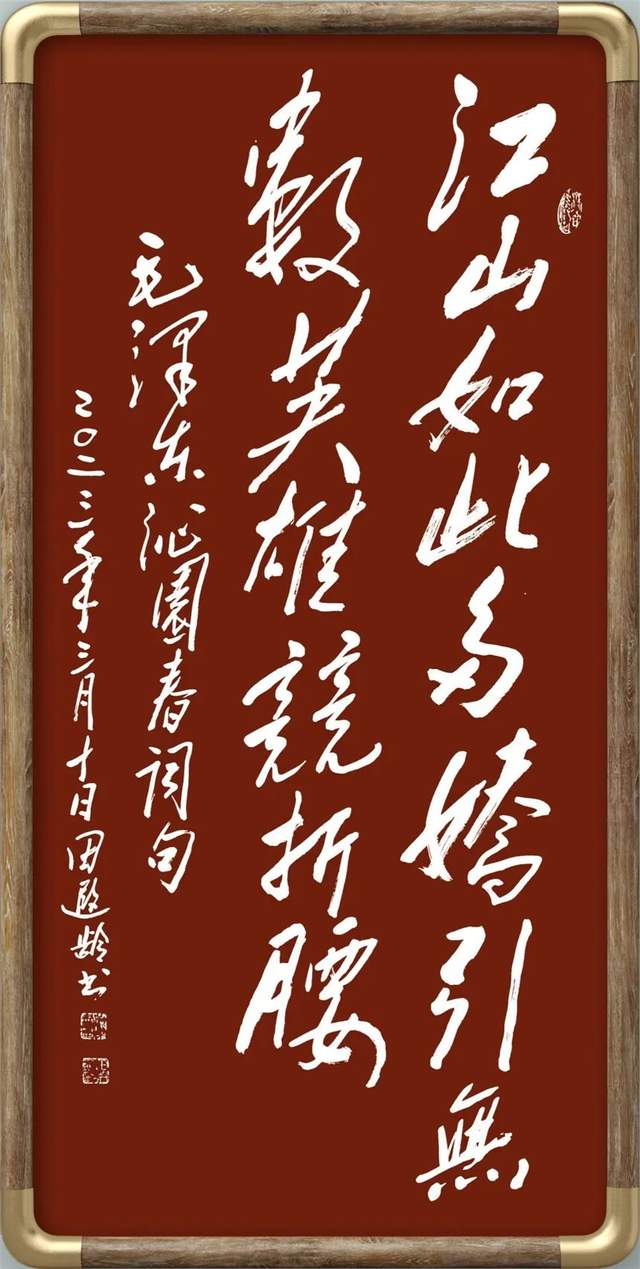 江山如此多嬌引無
數英雄競折腰
毛澤东沁園春詞句
二〇二三年三月十日田遐齡书